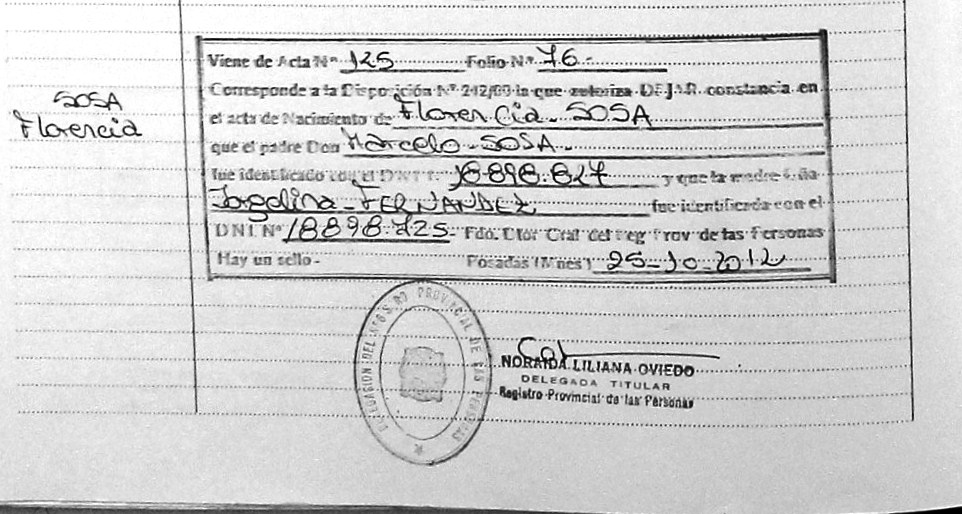 SOSA
Florencia
Viene de Acta Nº 125 Folio Nº 76-
Corresponde a la Disposición Nº 242/00 la que autoriza DEJAR constancia en
el acta de Nacimiento de Florencia - SOSA
que el padre Don Marcelo - SOSA -
fue identificado con el DNI Nº 18.898.827 y que la madre Doña
Jorgelina - FERNANDEZ fue identificada con el
DNI Nº 18898.725 - Fdo. Dtor Gral del Reg Prov de las Personas
Hay un sello - Posadas (Mnes) 25-10-2012
PROVINCIAL DE LAS PERSONAS
DELEGACION DEL
NORAIDA LILIANA OVIEDO
DELEGADA TITULAR
Registro Provincial de las Personas